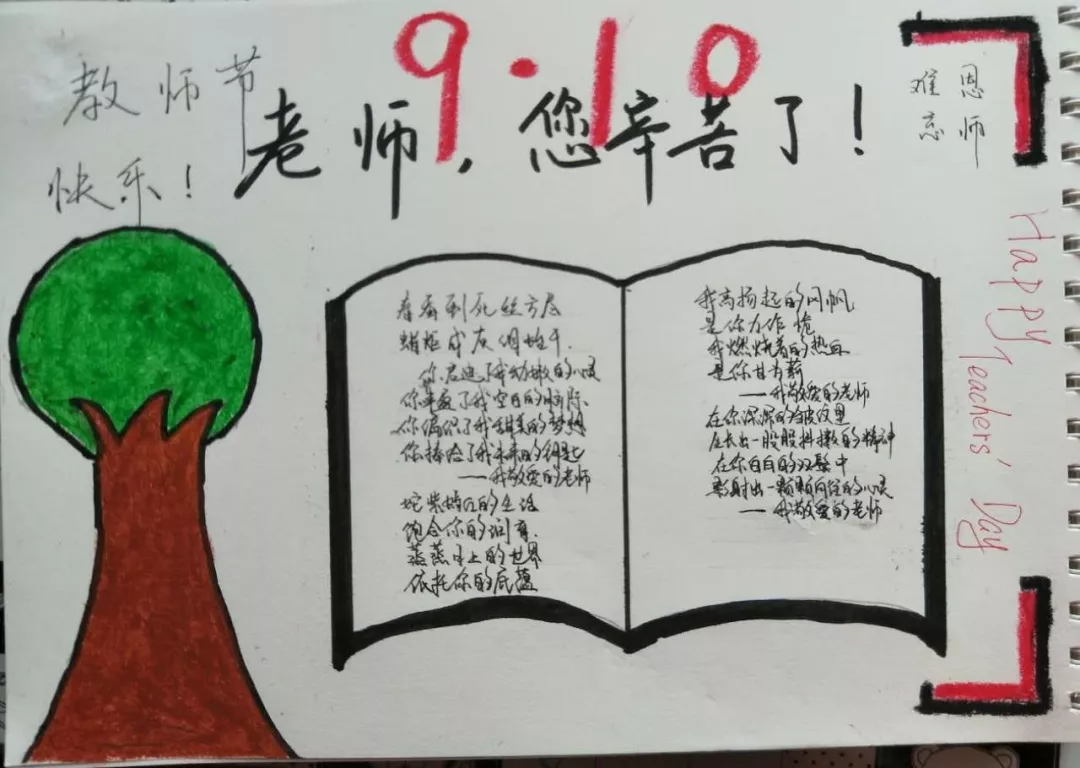 9·10
教师节
快乐！
老师，您辛苦了！
恩师
难忘
Happy Teachers' Day
春蚕到死丝方尽
蜡炬成灰泪始干.
你启迪了我幼嫩的心灵
你丰盈了我空白的脑际.
你编织了我甜美的梦想
你捧给了我未来的钥匙
——我敬爱的老师
姹紫嫣红的生活
饱含你的润育.
蒸蒸日上的世界
依托你的底蕴
我高扬起的风帆
是你为作桅
我燃烧着的热血
是你甘为薪
——我敬爱的老师
在你深深的皱纹里
生长出一股股抖擞的精神
在你白白的双鬓中
影射出一颗颗向往的心灵
——我敬爱的老师